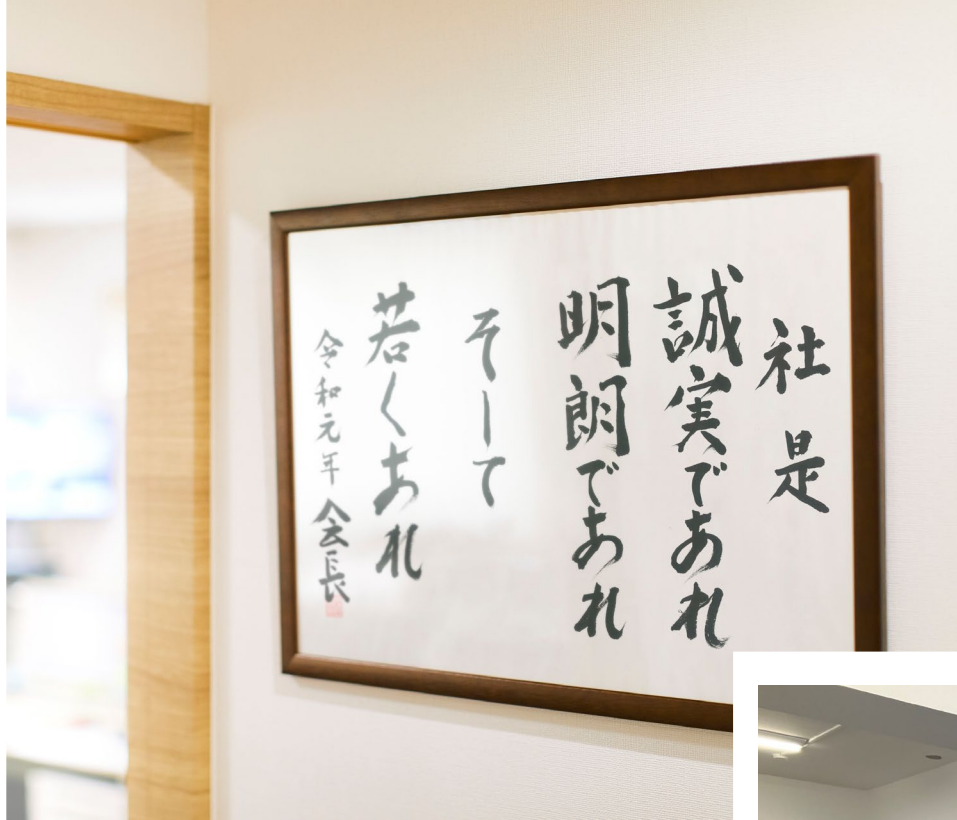 社是
誠実であれ
明朗であれ
そして
若くあれ
令和元年 会長